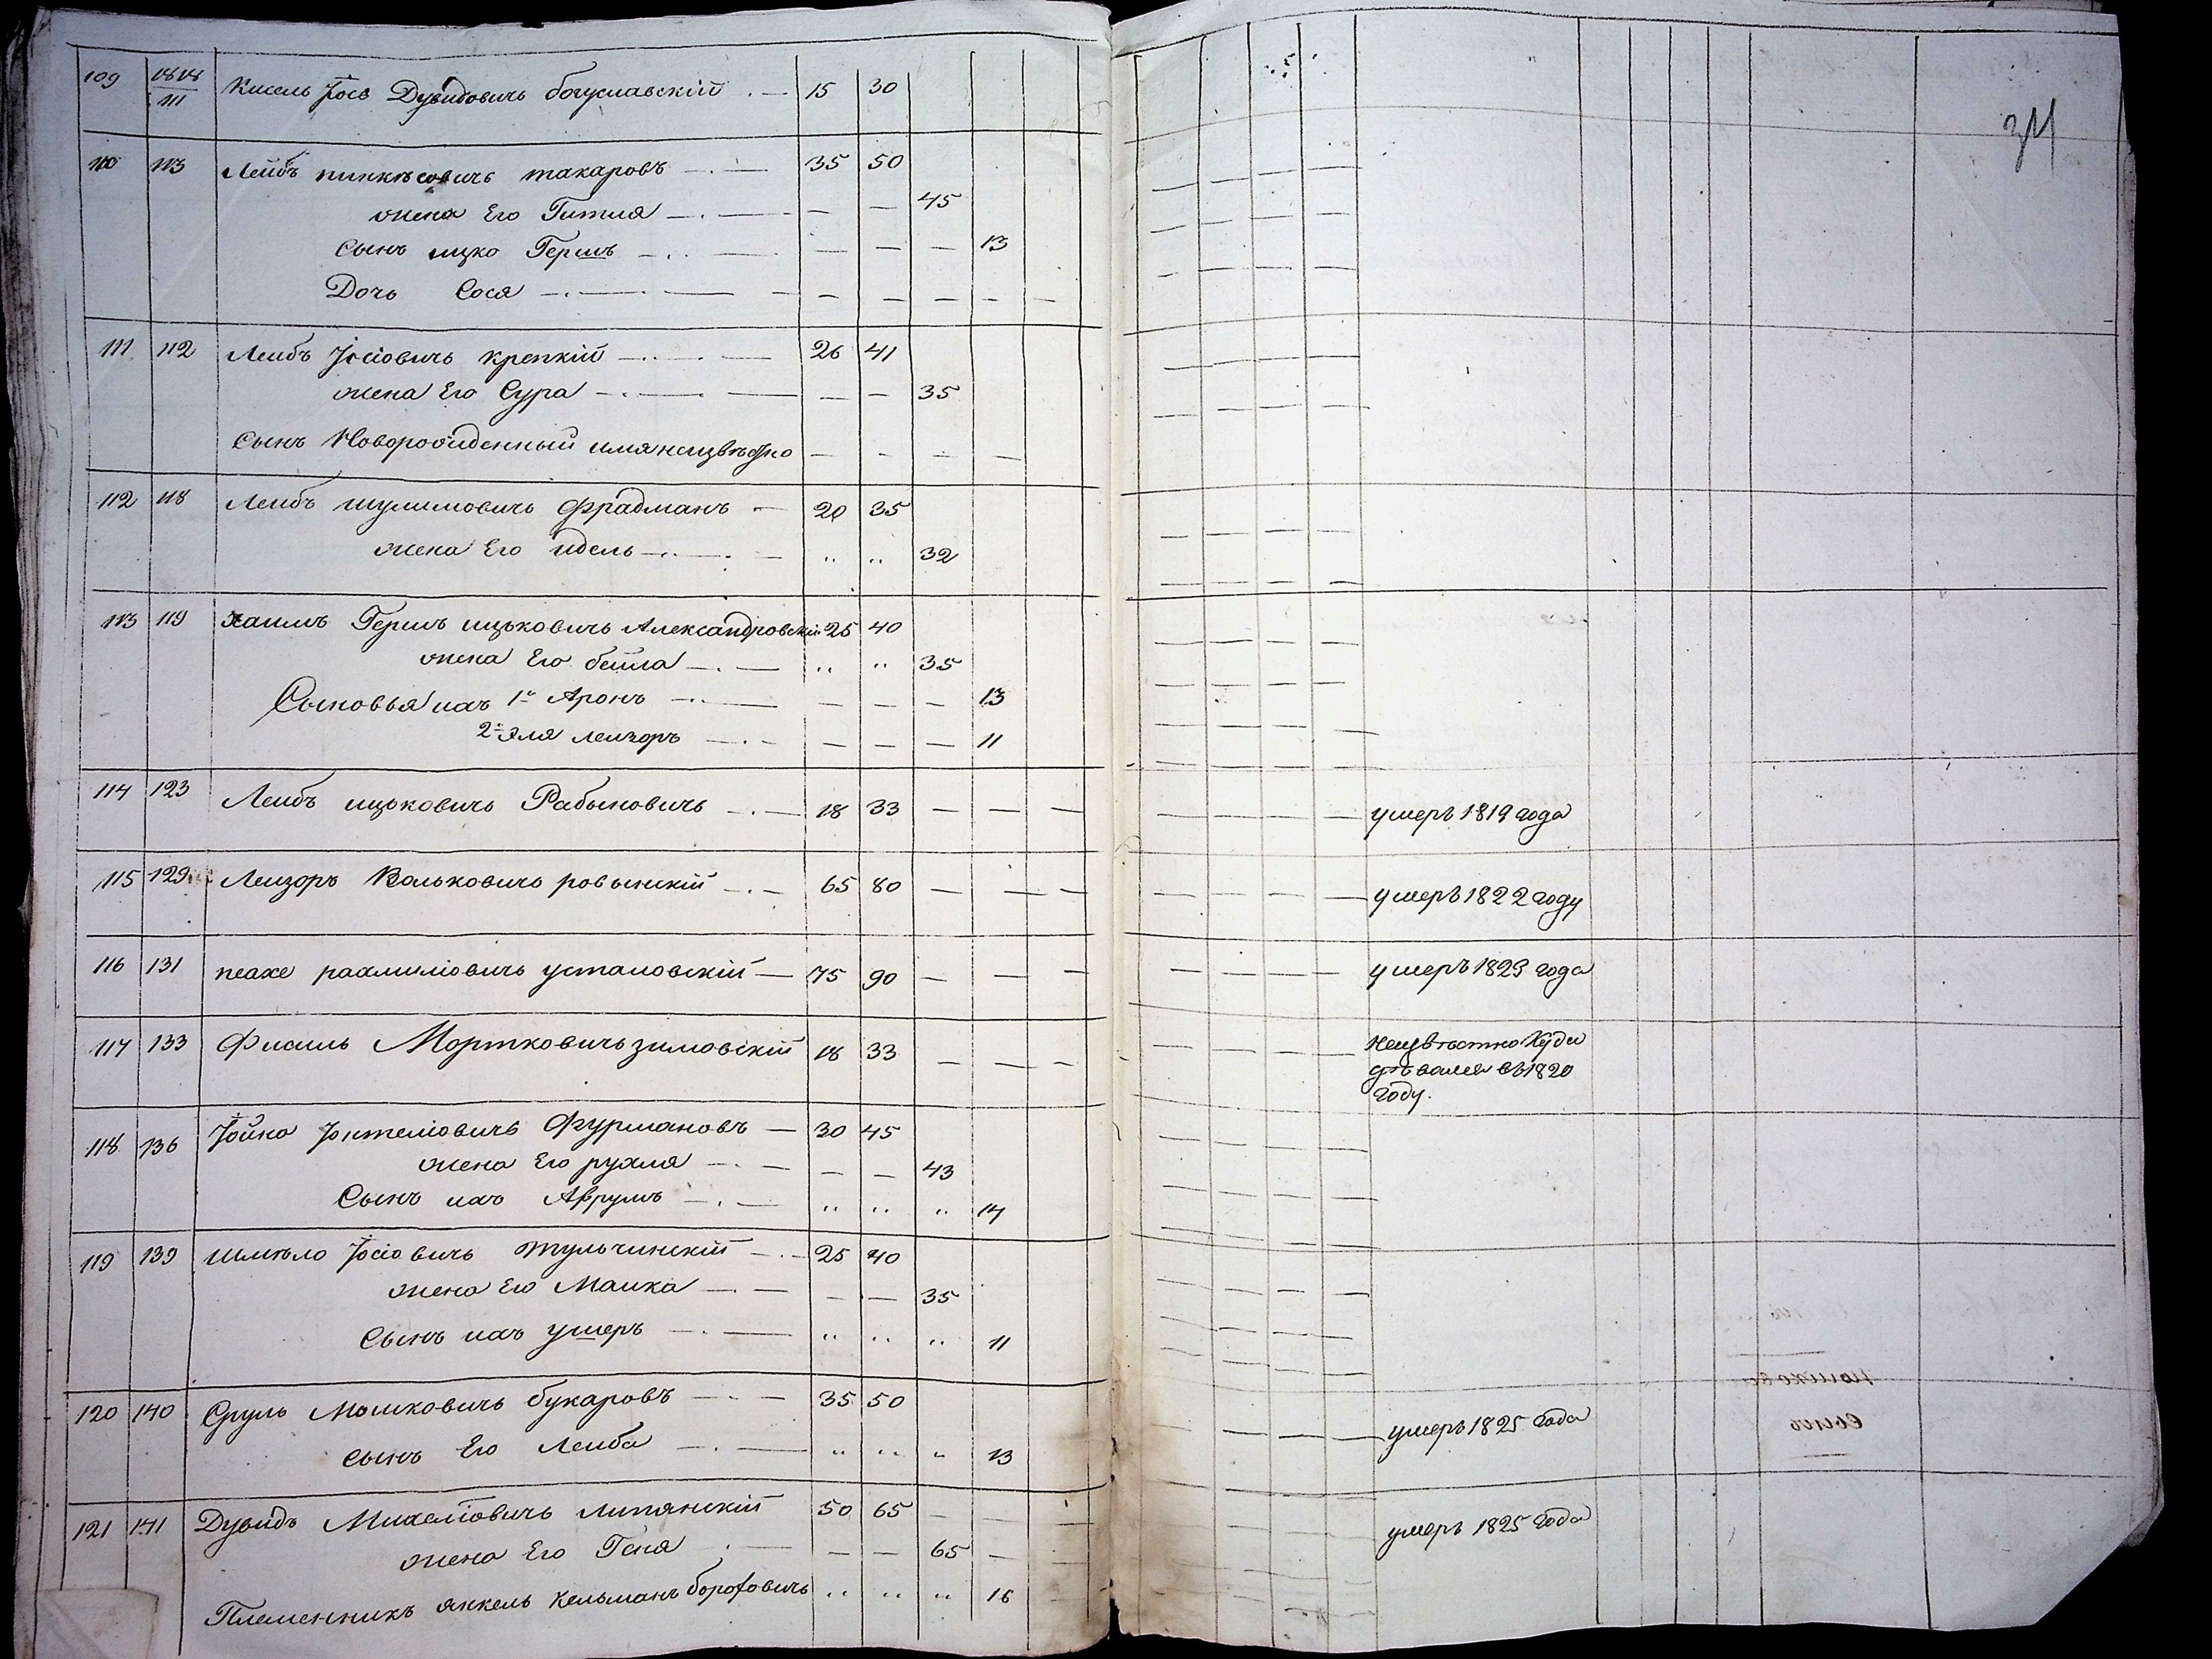 109 1818/111 Кисель Іосъ Дувидовичь богуславскій 15 30
110 113 Лейбъ пинкъсовичь макаровъ 35 50
жена Его Гитля 45
сынъ ицко Гершъ 13
Дочь Сося
111 112 Лейбъ Іосіовичь крепкій 26 41
жена Его Сура 35
сынъ Новорожденный имянеизвѣсно
112 118 Лейбъ шулимовичь Фрадманъ 20 35
жена Его идель 32
113 119 Хаимъ Гершъ ицьковичь Александровскій 25 40
жена Его бейла 35
Сыновья ихъ 1й Аронъ 13
2й эля лейзоръ 11
114 123 Лейбъ ицьковичь Рабыновичь 18 33
115 129 Лейзоръ Вольковичь ровынскій 65 80
116 131 рахмиліовичь 75 90
117 133 Фисиль Мортковичь зимовскій 18 33
118 136 Іойна Фурмановъ 30 45
жена Его рухля 43
Сынъ ихъ Аврумъ 14
119 139 шмыло Іосіовичь тульчинскій 25 40
жена Его Малка 35
Сынъ ихъ ушеръ 11
120 140 Сруль Мошковичь букаровъ 35 50
сынъ Его Лейба 13
121 141 Дувидъ Михеліовичь липянскій 50 65
жена Его Геня 65
Племенникъ янкель кельманъ 16
34
умеръ 1819 года
умеръ 1822 году
умеръ 1823 года
неизвѣстно куда
дѣвался въ 1820
году.
умеръ 1825 года
умеръ 1825 года